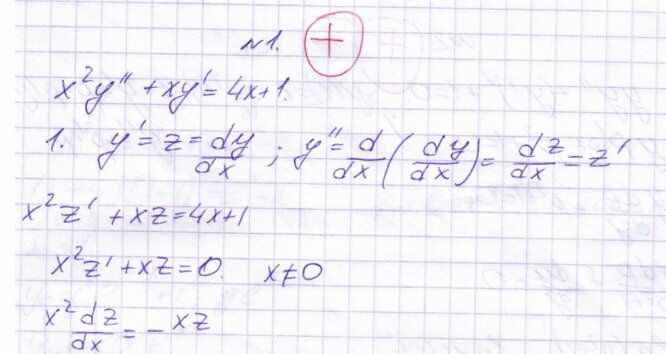 №1. +
x²y'' + xy' = 4x+1.
1. y' = z = dy/dx ; y'' = d/dx (dy/dx) = dz/dx = z'
x²z' + xz = 4x+1
x²z' + xz = 0. x≠0
x² dz/dx = - xz